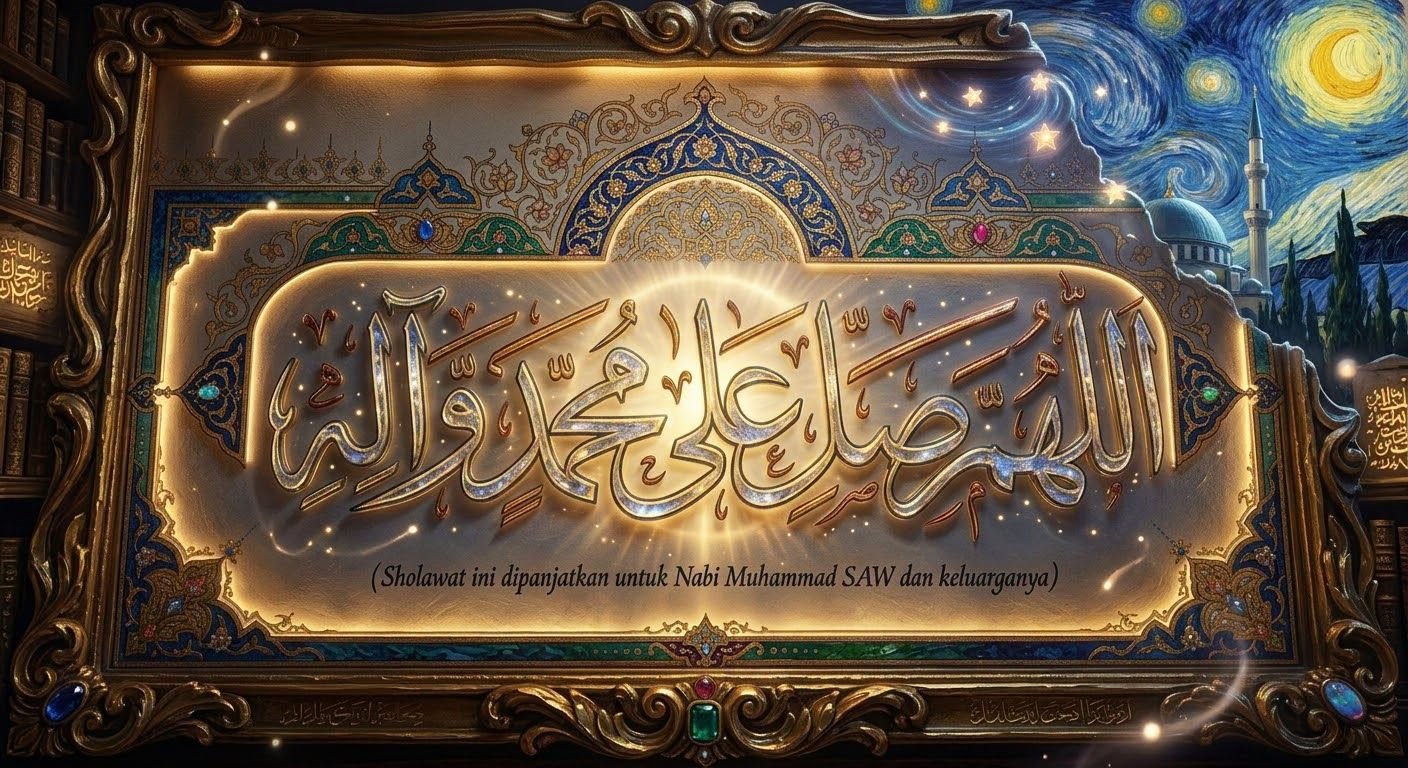 اللّٰهُمَّ صَلِّ عَلَى مُحَمَّدٍ وَّآلِهِ
(Sholawat ini dipanjatkan untuk Nabi Muhammad SAW dan keluarganya)